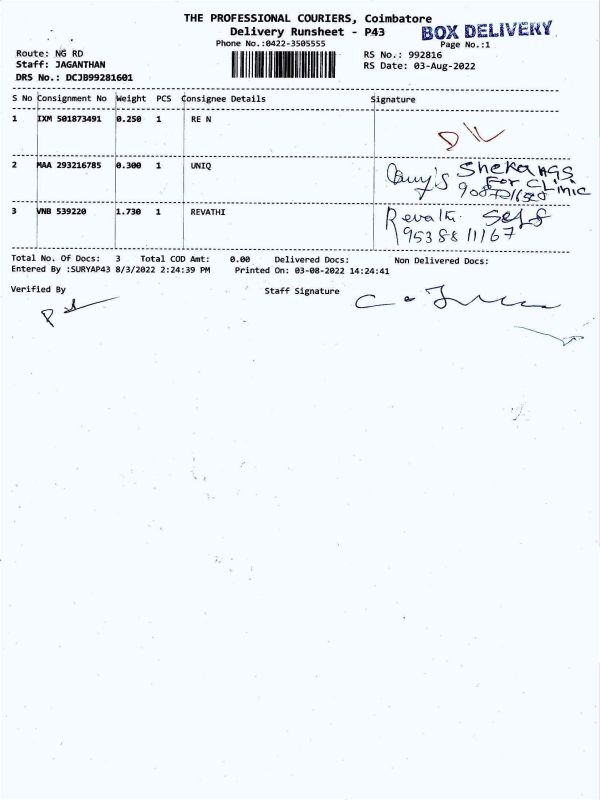 THE PROFESSIONAL COURIERS, Coimbatore
Delivery Runsheet - P43
BOX DELIVERY
Phone No.:0422-3505555
Page No.:1
Route: NG RD
RS No.: 992816
Staff: JAGANTHAN
RS Date: 03-Aug-2022
DRS No.: DCJB99281601
S No Consignment No Weight PCS Consignee Details Signature
1 IXM 501873491 0.250 1 RE N
2 MAA 293216785 0.300 1 UNIQ
For Clinic
3 VNB 539220 1.730 1 REVATHI
Revathi Self
9538811167
Total No. Of Docs: 3 Total COD Amt: 0.00 Delivered Docs: Non Delivered Docs:
Entered By :SURYAP43 8/3/2022 2:24:39 PM Printed On: 03-08-2022 14:24:41
Verified By Staff Signature